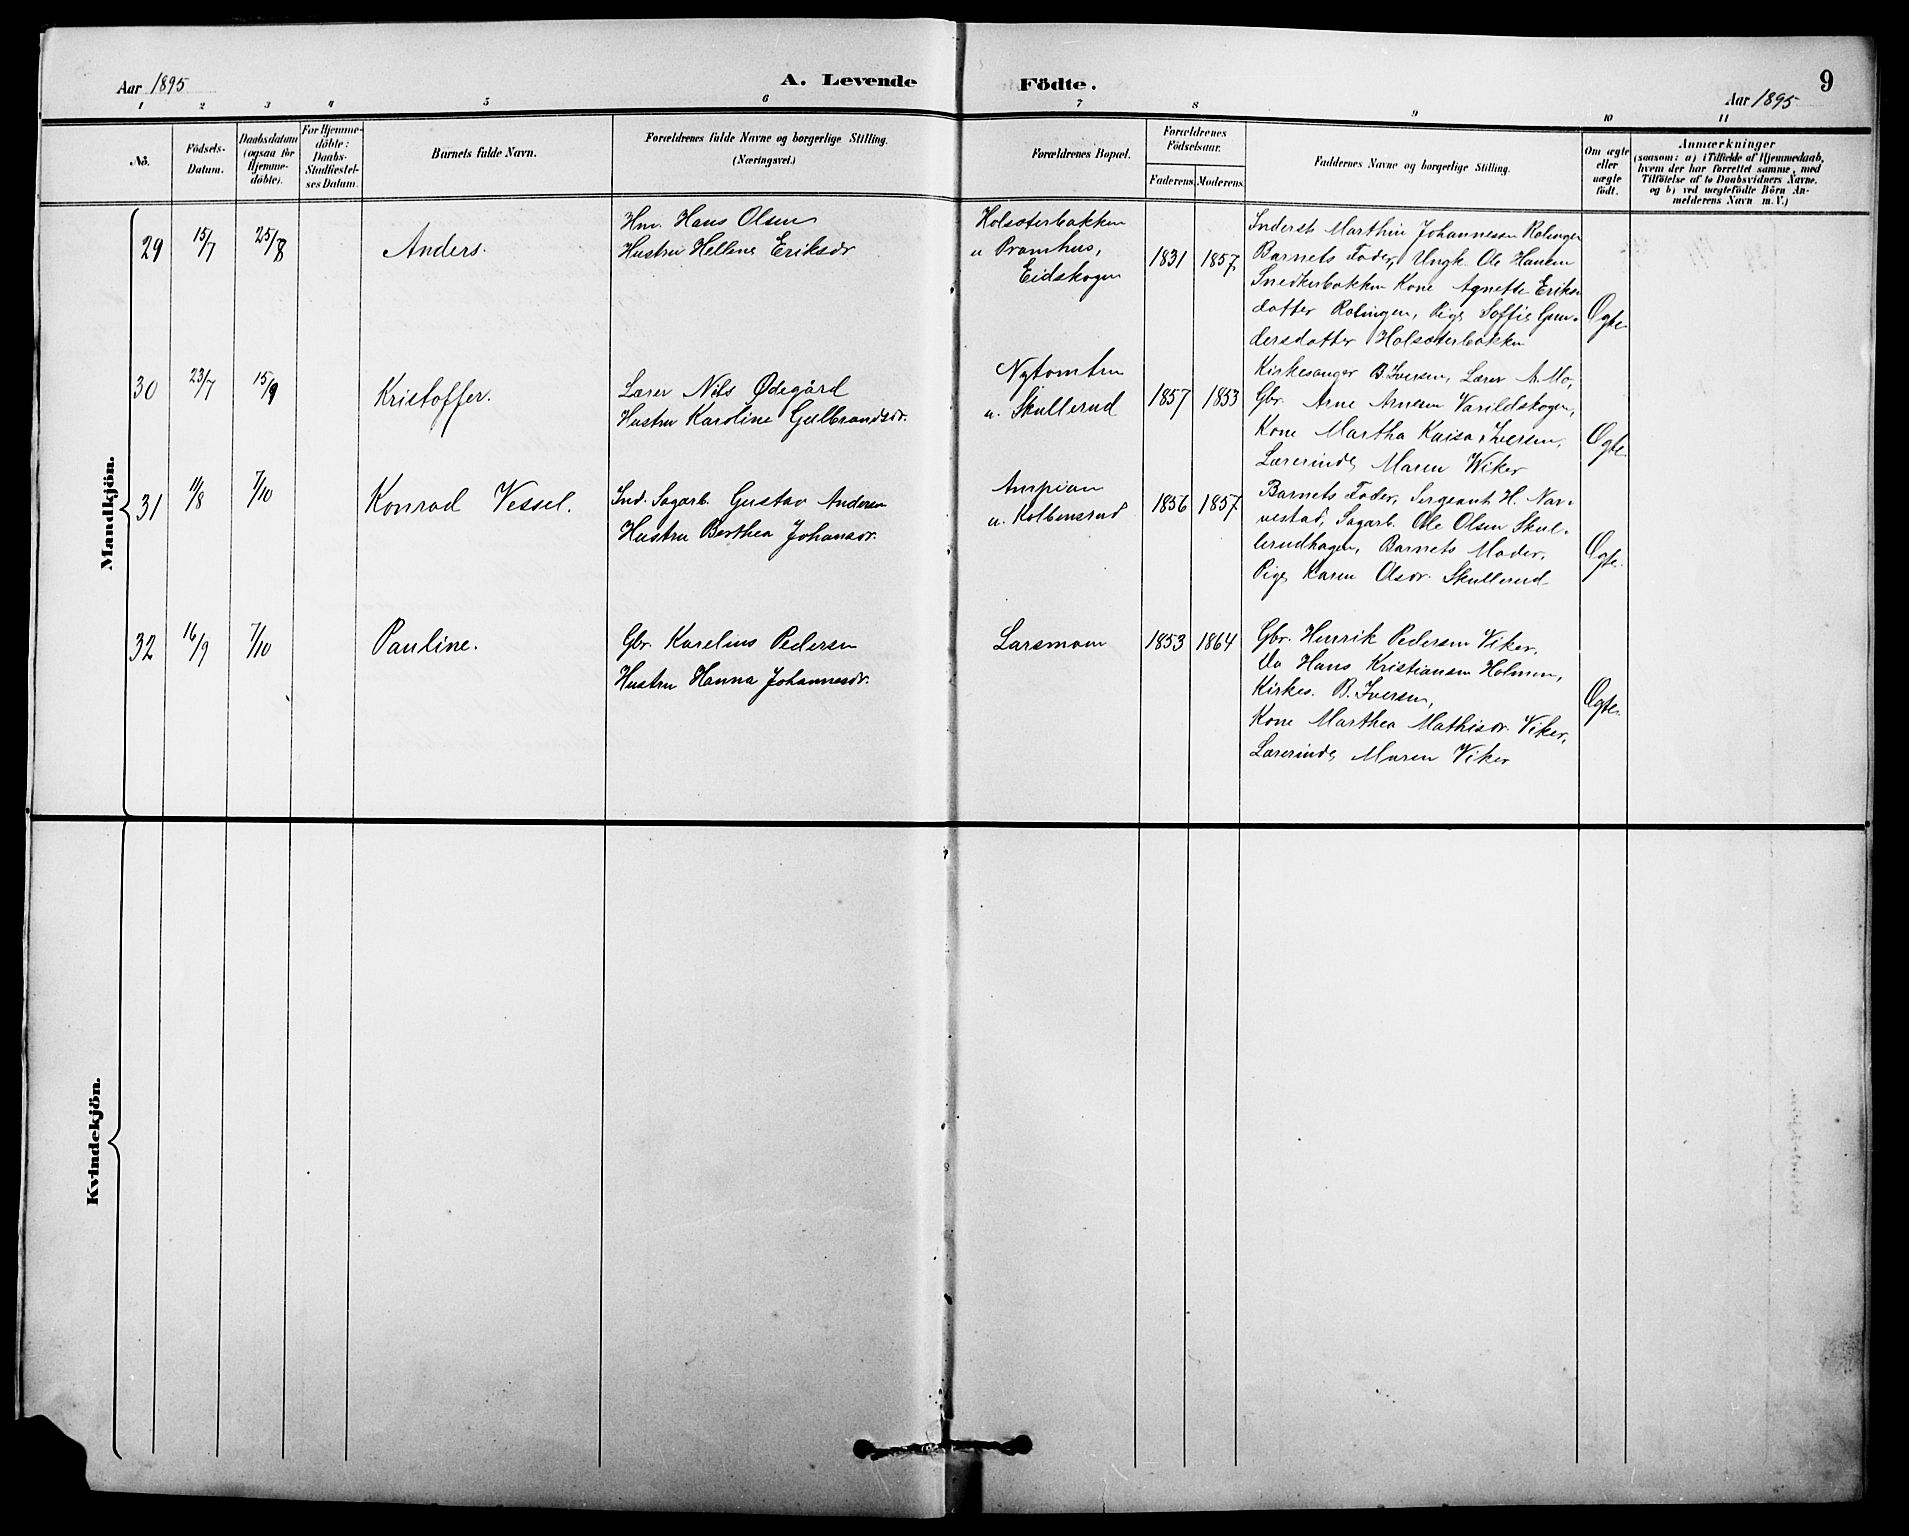 Aar 1895
A. Levende Födte.
Aar 1895
9
1 2 3 4 5 6 7 8 9 10 11
No.
Födsels-
Datum.
Daabsdatum
(ogsaa for
Hjemme-
döbte).
For Hjemme-
döbte:
Daabs-
Stadfæstel-
ses Datum.
Barnets fulde Navn.
Forældrenes fulde Navne og borgerlige Stilling.
(Næringsvei.)
Forældrenes Bopæl.
Forældrenes
Födselsaar.
Faderens. Moderens.
Faddernes Navne og borgerlige Stilling.
Om ægte
eller
uægte
födt.
Anmærkninger
(saasom: a) i Tilfælde af Hjemmedaab,
hvem der har forrettet samme, med
Tilföielse af to Daabsvidners Navne,
og b) ved uægtefödte Börn An-
melderens Navn m. V.)
Mandkjön.
29 15/7 25/8
Anders.
Hm. Hans Olsen
Hustru Hellene Eriksdr
Holsæterbakken
u Pramhus,
Eidskogen
1831 1857
Inderst Marthin Johannesen Rolingen
Barnets Fader, Ungk. Ole Hansen
Snedkerbakken Kone Agnethe Eriks
datter Rolingen, Pige Soffie Gun-
dersdatter Holsæterbakken
Ægte
30 23/7 15/9
Kristoffer.
Lærer Nils Ødegård
Hustru Karoline Gulbrandsdr.
Nytomten
u. Skullerud
1857 1853
Kirkesanger B. Iversen, Lærer A. Mo,
Gbr. Arne Arnesen Varildskogen,
Kone Martha Kaisa Iversen,
Lærerinde Maren Wiker
Ægte.
31 11/8 7/10
Konrad Vessel.
Ind. Sagarb. Gustav Andersen
Hustru Berthea Johansdr.
Ampian
u. Kolbensrud
1856 1857
Barnets Fader, Sergeant H. Nav-
vestad, Sagarb. Ole Olsen Skul-
lerudhagen, Barnets Moder,
Pige Karen Olsdr. Skullerud
Ægte.
32 16/9 7/10
Pauline.
Gbr. Karelius Pedersen
Hustru Hanna Johannesdr.
Larsmoen
1853 1864
Gbr. Henrik Pedersen Viker,
Do Hans Kristiansen Holmen,
Kirkes. B. Iversen,
Kone Marthea Mathisdr. Viker,
Lærerinde Maren Viker
Ægte.
Kvindekjön.